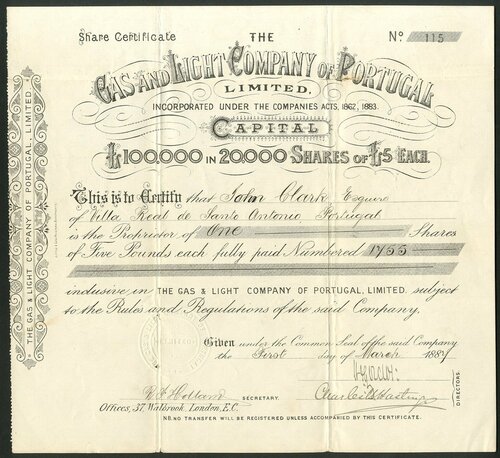 Share Certificate
THE
No. 115
GAS AND LIGHT COMPANY OF PORTUGAL
LIMITED.
INCORPORATED UNDER THE COMPANIES ACTS, 1862, 1883.
CAPITAL
£100,000 IN 20,000 SHARES OF £5 EACH.
This is to Certify that John Clark Esquire
of Villa Real de Santo Antonio, Portugal
is the Proprietor of One Shares
of Five Pounds each fully paid Numbered 1755
inclusive in THE GAS & LIGHT COMPANY OF PORTUGAL, LIMITED, subject
to the Rules and Regulations of the said Company.
Given under the Common Seal of the said Company
the First day of March 1887
SECRETARY.
DIRECTORS.
Offices, 37, Walbrook, London, E.C.
NB. NO TRANSFER WILL BE REGISTERED UNLESS ACCOMPANIED BY THIS CERTIFICATE.
THE GAS & LIGHT COMPANY OF PORTUGAL, LIMITED.